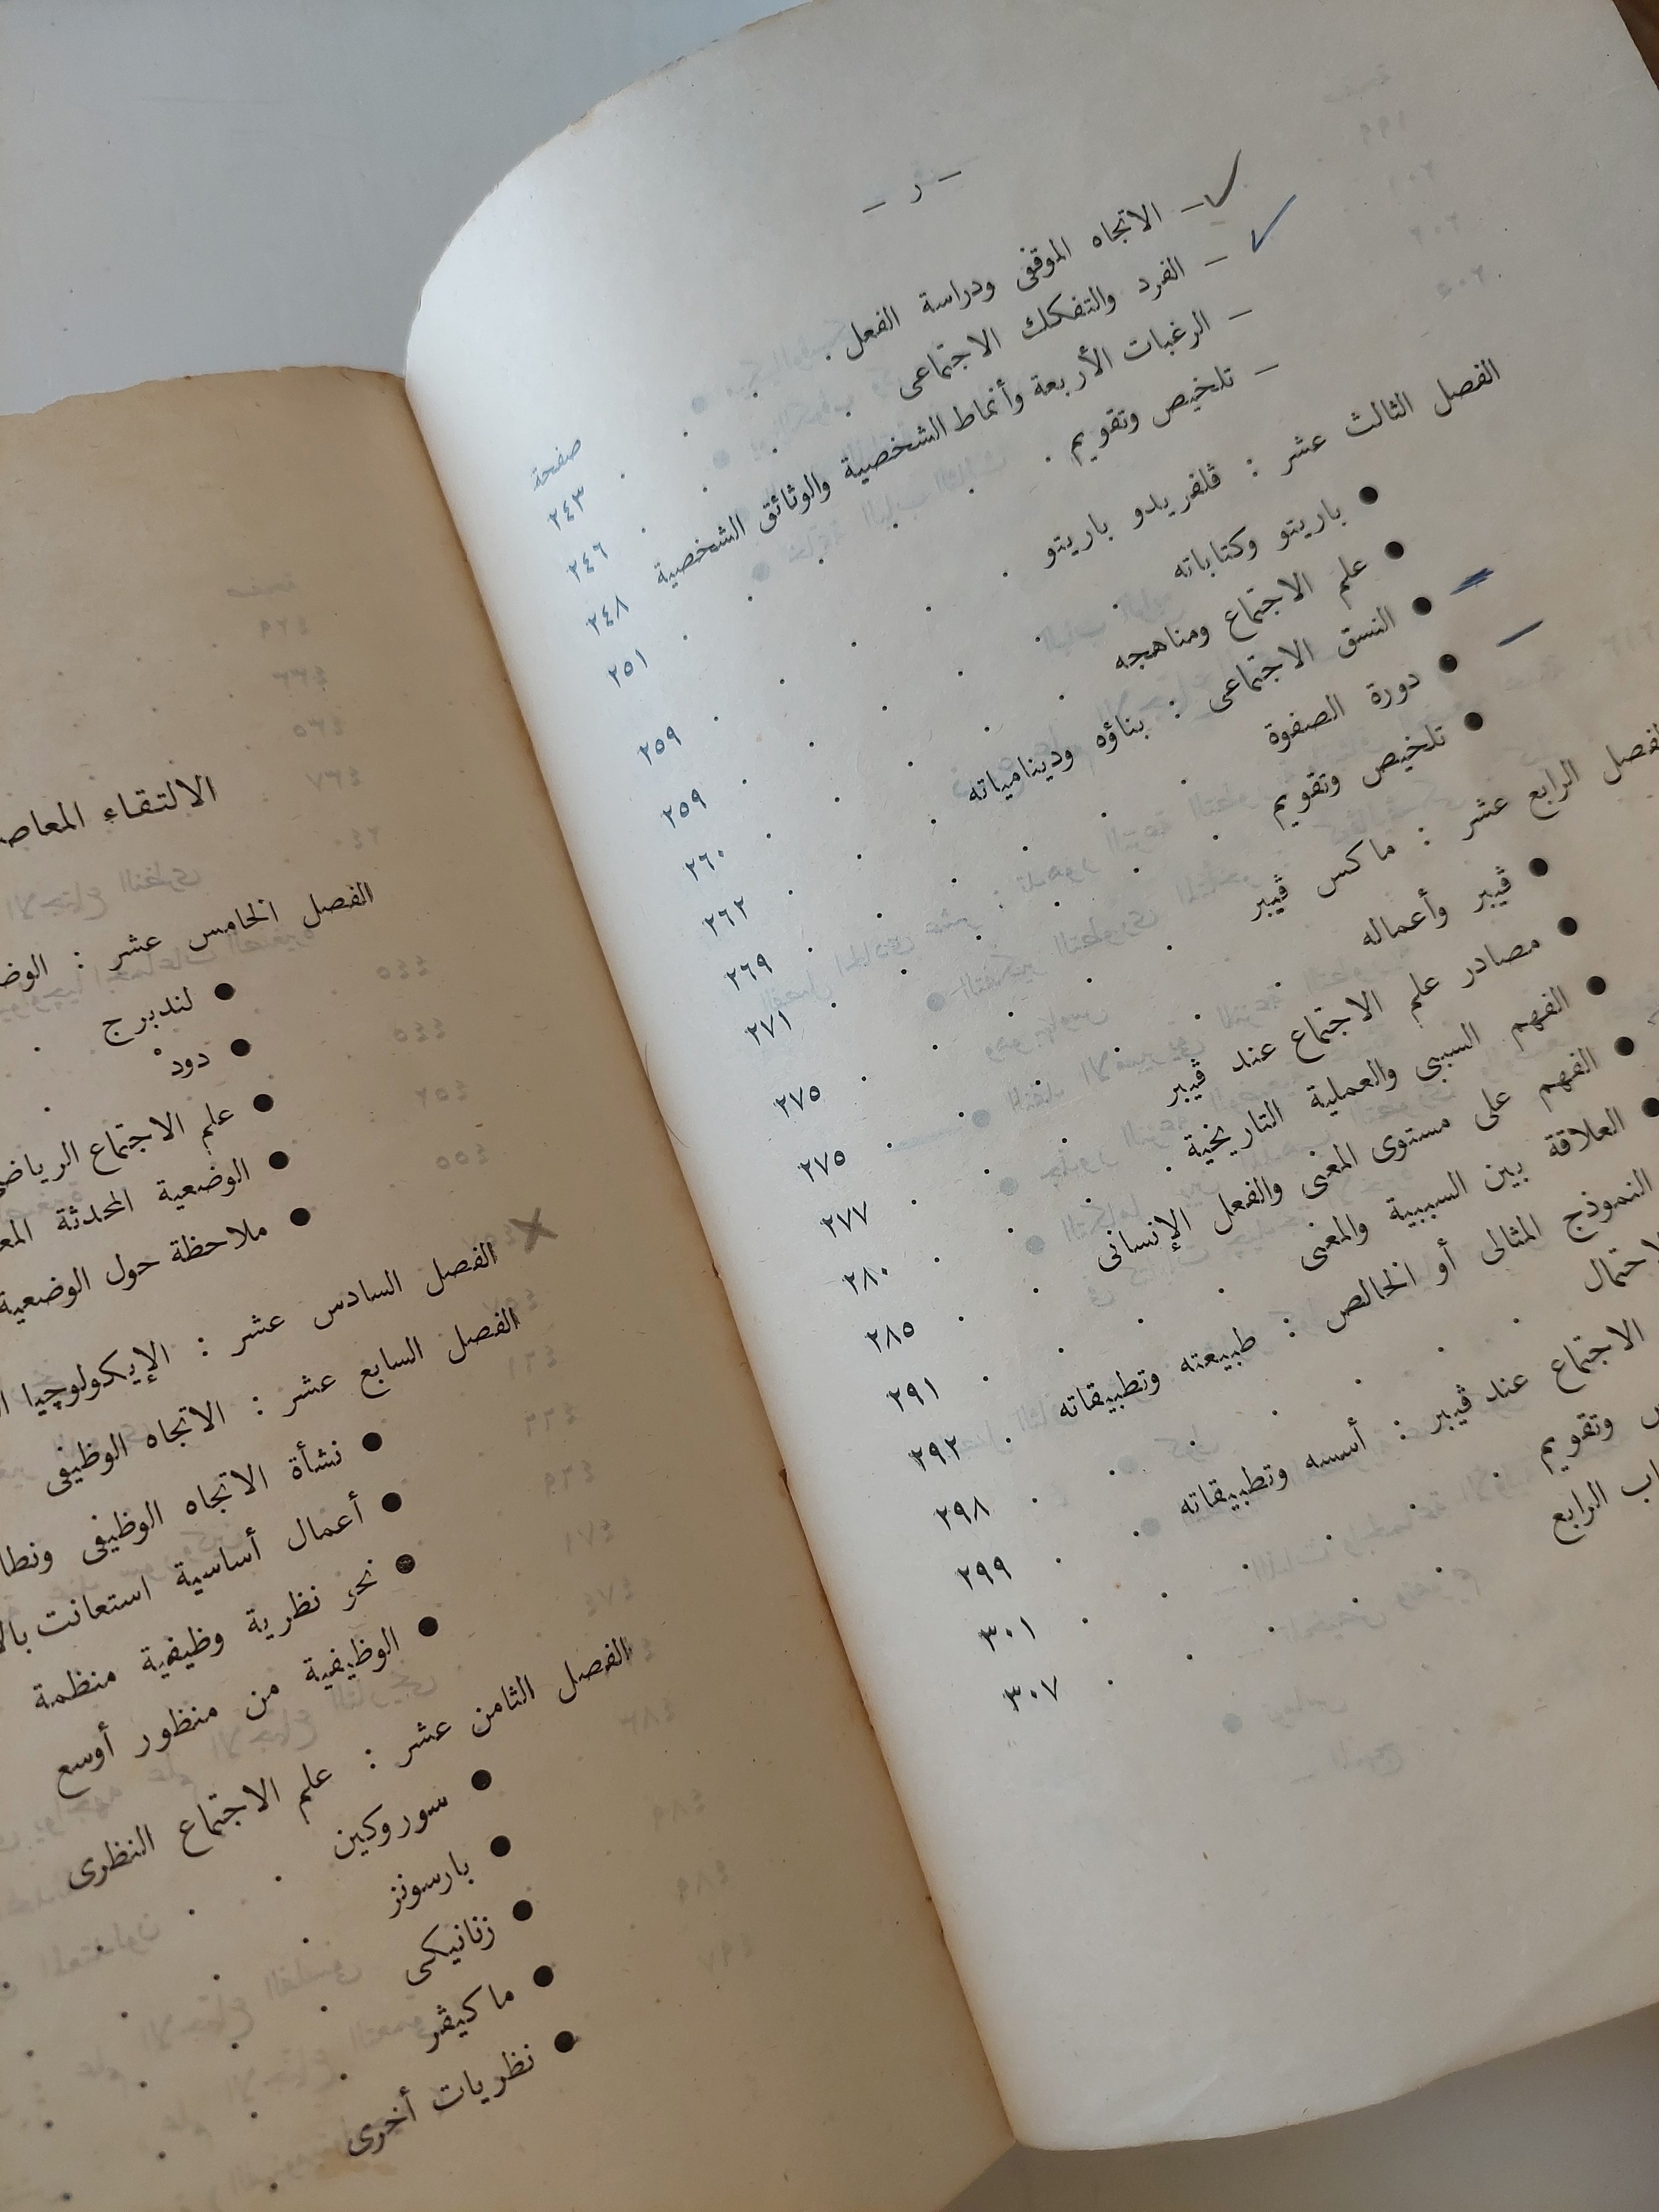 – و –
صفحة
– الاتجاه الموقفى ودراسة الفعل . ٢٤٣
– الفرد والتفكك الاجتماعى ٢٤٦
– الرغبات الأربعة وأنماط الشخصية والوثائق الشخصية ٢٤٨
– تلخيص وتقويم . ٢٥١
الفصل الثالث عشر : ڤلفريدو باريتو ٢٥٩
● باريتو وكتاباته ٢٥٩
● علم الاجتماع ومناهجه ٢٦٠
● النسق الاجتماعى : بناؤه ودينامياته ٢٦٢
● دورة الصفوة ٢٦٩
● تلخيص وتقويم ٢٧١
الفصل الرابع عشر : ماكس ڤيبر ٢٧٥
● ڤيبر وأعماله ٢٧٥
● مصادر علم الاجتماع عند ڤيبر ٢٧٧
● الفهم السببى والعملية التاريخية . ٢٨٠
● الفهم على مستوى المعنى والفعل الإنسانى ٢٨٥
● العلاقة بين السببية والمعنى ٢٩١
النموذج المثالى أو الخالص : طبيعته وتطبيقاته ٢٩٢
٢٩٨
الاجتماع عند ڤيبر : أسسه وتطبيقاته ٢٩٩
وتقويم ٣٠١
الرابع ٣٠٧
الالتقاء
الفصل الخامس عشر :
● لندبرج
● دودْ
● علم الاجتماع
● الوضعية المحدثة
● ملاحظة حول الوضعية
الفصل السادس عشر : الإيكولوچيا
الفصل السابع عشر : الاتجاه الوظيفى
● نشأة الاتجاه الوظيفى
● أعمال أساسية استعانت
● نحو نظرية وظيفية منظمة
● الوظيفية من منظور أوسع
الفصل الثامن عشر : علم الاجتماع النظرى
● سوروكين
● بارسونز
● زنانيكى
● ماكيڤر
● نظريات أخرى